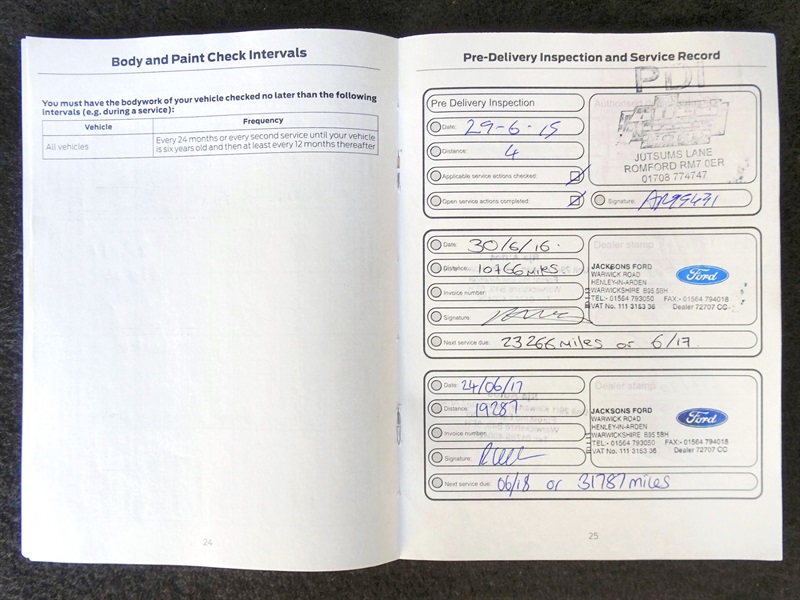 Body and Paint Check Intervals
You must have the bodywork of your vehicle checked no later than the following
intervals (e.g. during a service):
Vehicle Frequency
All vehicles Every 24 months or every second service until your vehicle
is six years old and then at least every 12 months thereafter
24
Pre-Delivery Inspection and Service Record
PDI
Pre Delivery Inspection
Date: 29-6-15
Distance: 4
Applicable service actions checked:
Open service actions completed:
JUTSUMS LANE
ROMFORD RM7 0ER
01708 774747
Signature:
Date: 30/6/16.
Distance: 10766 MILES
Invoice number
Signature
Next service due: 23266 MILES or 6/17.
Dealer stamp
JACKSONS FORD
WARWICK ROAD
HENLEY-IN-ARDEN
WARWICKSHIRE B95 5BH
TEL:- 01564 793050 FAX:- 01564 794018
VAT No. 111 3153 36 Dealer 72707 CC
Ford
Date: 24/06/17
Distance 19287
Invoice number
Signature:
Next service due: 06/18 or 31787 MILES
Dealer stamp
JACKSONS FORD
WARWICK ROAD
HENLEY-IN-ARDEN
WARWICKSHIRE B95 5BH
TEL:- 01564 793050 FAX:- 01564 794018
VAT No. 111 3153 36 Dealer 72707 CC
Ford
25